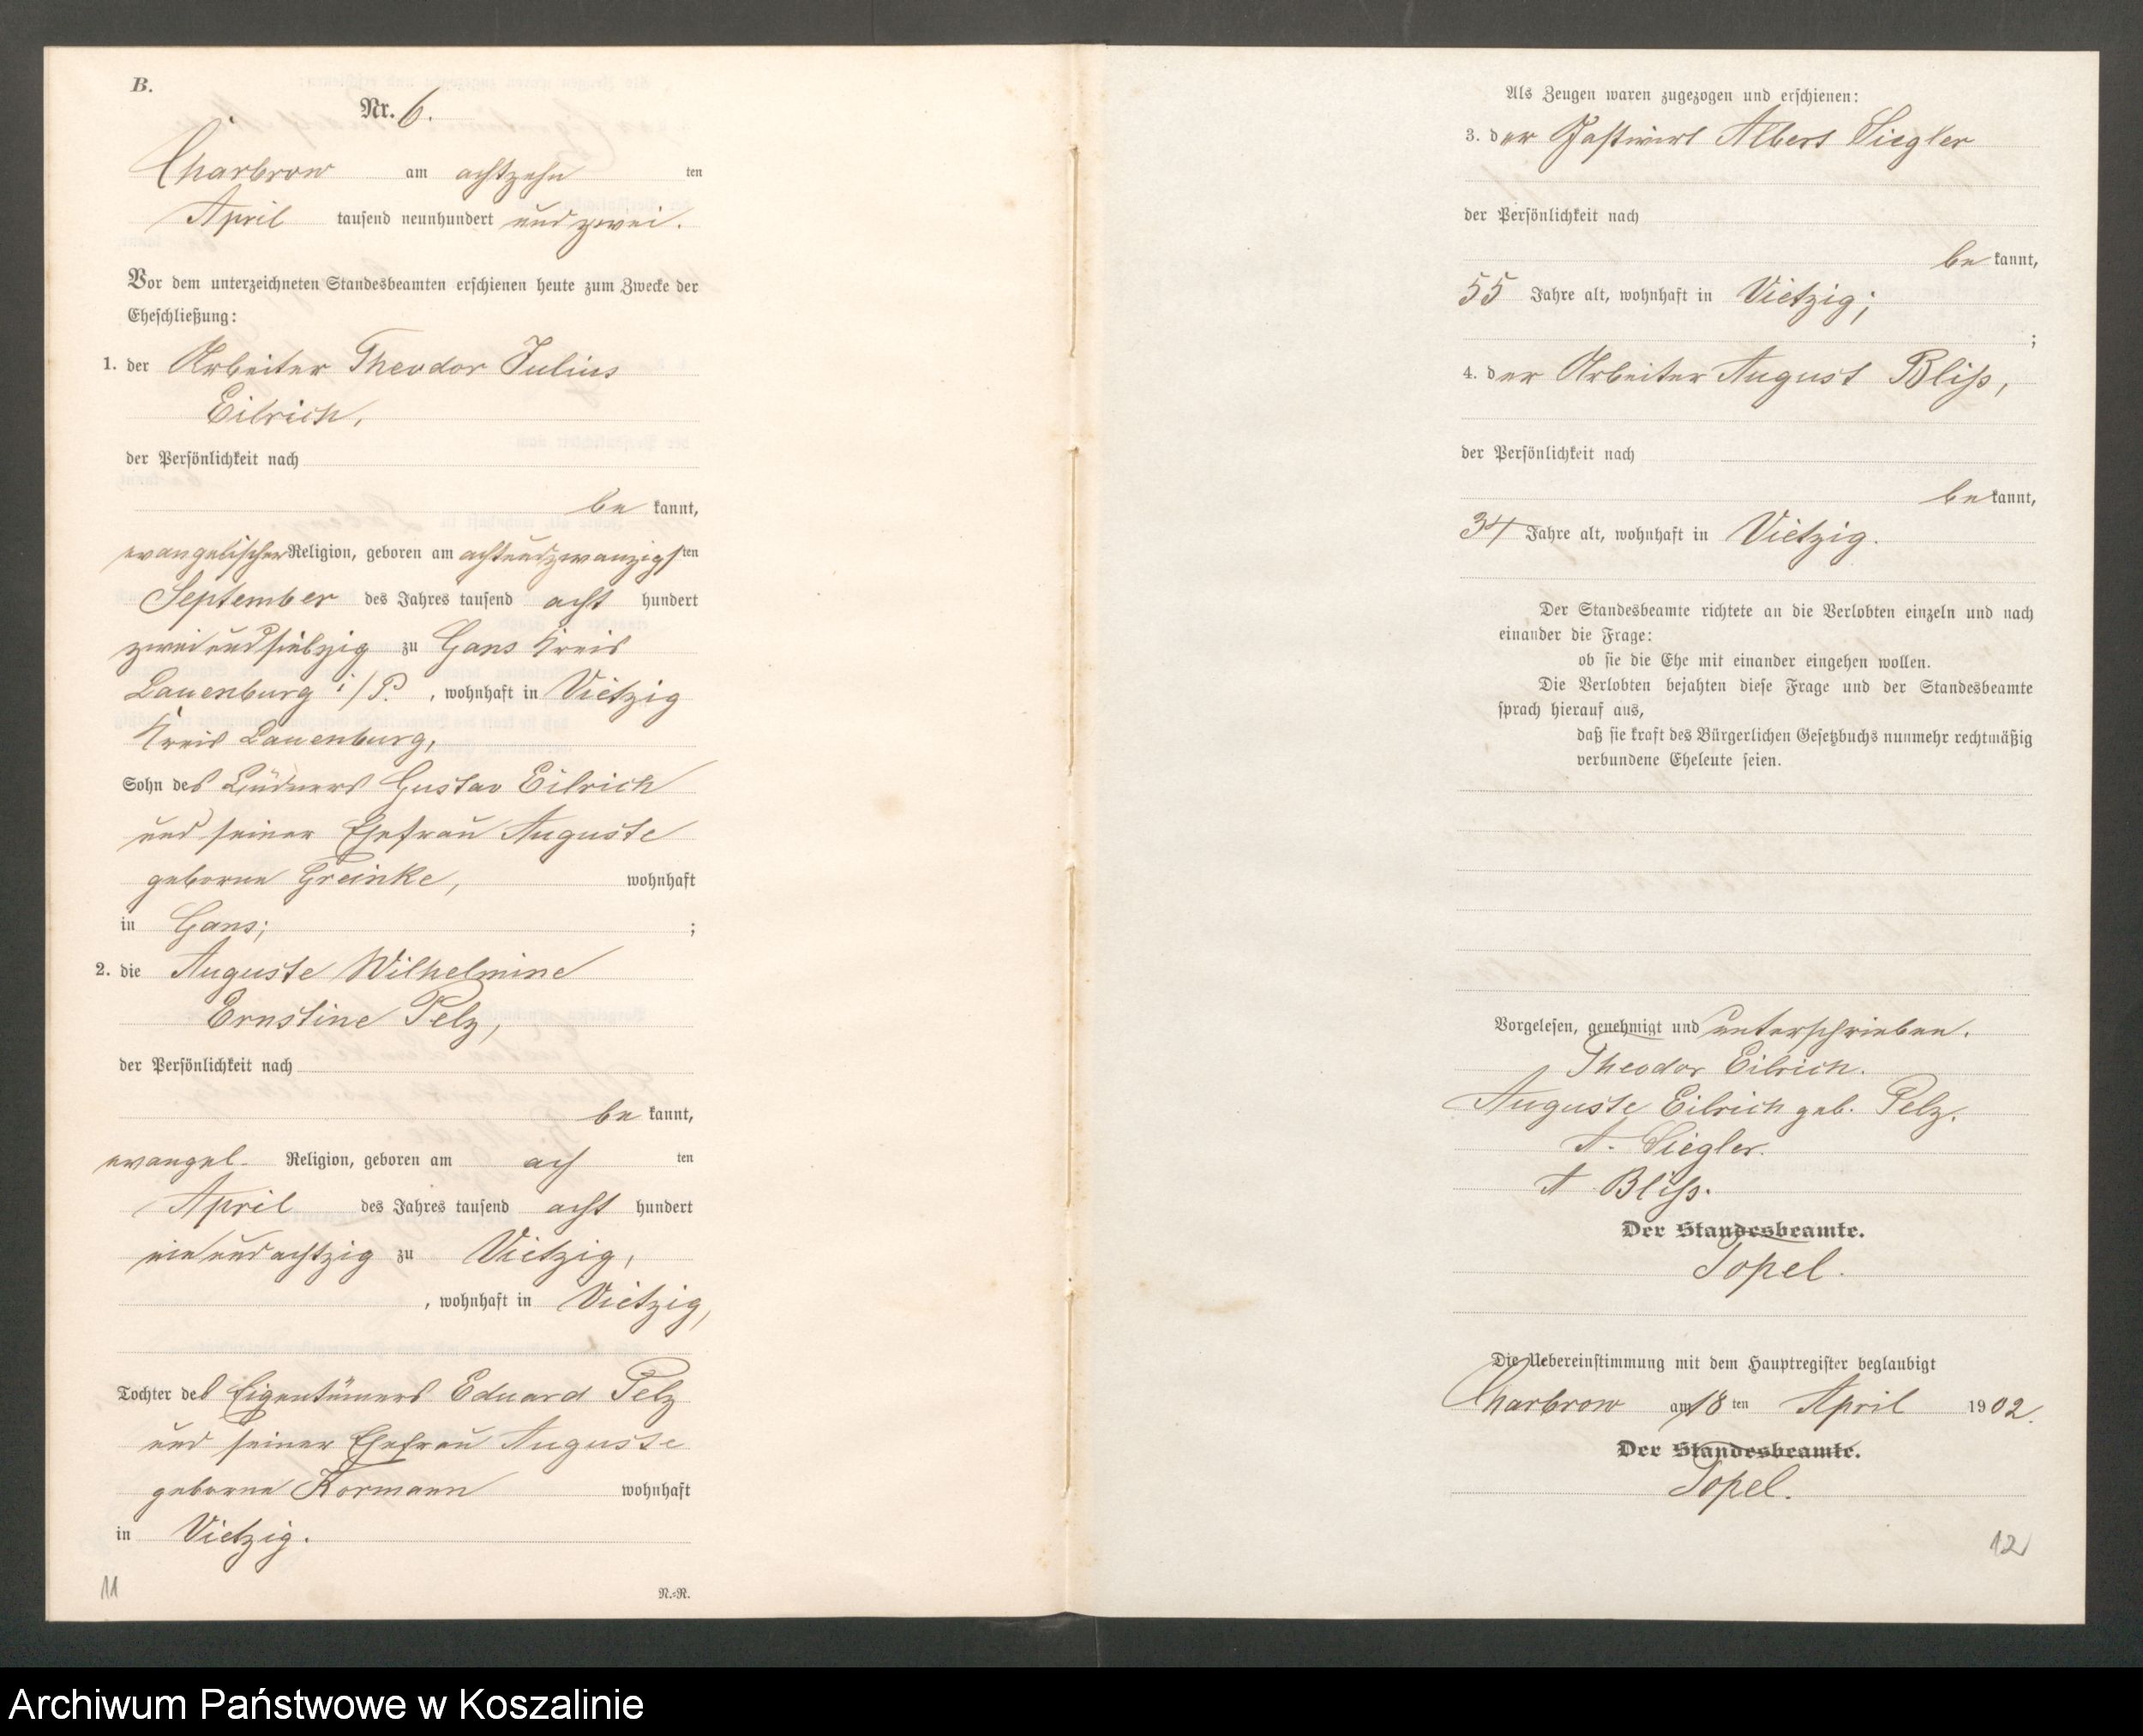 B.
Nr. 6.
Charbrow am achtzehn ten
April tausend neunhundert und zwei.
Vor dem unterzeichneten Standesbeamten erschienen heute zum Zwecke der
Eheschließung:
1. der Arbeiter Theodor Julius
Eilrich,
der Persönlichkeit nach
be kannt,
evangelischer Religion, geboren am achtundzwanzigsten
September des Jahres tausend acht hundert
zweiundsiebzig zu Gans Kreis
Lauenburg i/P. , wohnhaft in Vietzig
Kreis Lauenburg,
Sohn des Büdners Gustav Eilrich
und seiner Ehefrau Auguste
geborne Greinke, wohnhaft
in Gans; ;
2. die Auguste Wilhelmine
Ernstine Pelz,
der Persönlichkeit nach
be kannt,
evangel. Religion, geboren am ach ten
April des Jahres tausend acht hundert
einundachtzig zu Vietzig,
, wohnhaft in Vietzig,
Tochter des Eigentümers Eduard Pelz
und seiner Ehefrau Auguste
geborne Kormann wohnhaft
in Vietzig.
11
N.-R.
Als Zeugen waren zugezogen und erschienen:
3. der Gastwirt Albert Siegler
der Persönlichkeit nach
be kannt,
55 Jahre alt, wohnhaft in Vietzig;
;
4. der Arbeiter August Bliß,
der Persönlichkeit nach
be kannt,
34 Jahre alt, wohnhaft in Vietzig.
Der Standesbeamte richtete an die Verlobten einzeln und nach
einander die Frage:
ob sie die Ehe mit einander eingehen wollen.
Die Verlobten bejahten diese Frage und der Standesbeamte
sprach hierauf aus,
daß sie kraft des Bürgerlichen Gesetzbuchs nunmehr rechtmäßig
verbundene Eheleute seien.
Vorgelesen, genehmigt und unterschrieben.
Theodor Eilrich.
Auguste Eilrich geb. Pelz.
A. Siegler.
A. Bliß.
Der Standesbeamte.
Topel.
Die Uebereinstimmung mit dem Hauptregister beglaubigt
Charbrow am 18 ten April 1902.
Der Standesbeamte.
Topel.
12
Archiwum Państwowe w Koszalinie